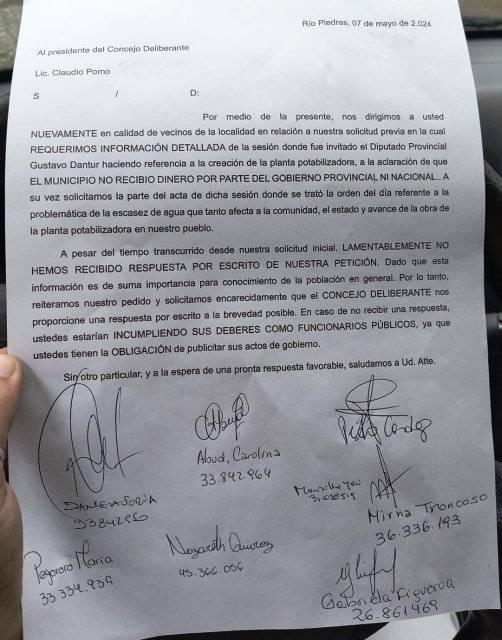 Río Piedras, 07 de mayo de 2.024
Al presidente del Concejo Deliberante
Lic. Claudio Pomo
S / D:
Por medio de la presente, nos dirigimos a usted
NUEVAMENTE en calidad de vecinos de la localidad en relación a nuestra solicitud previa en la cual
REQUERIMOS INFORMACIÓN DETALLADA de la sesión donde fue invitado el Diputado Provincial
Gustavo Dantur haciendo referencia a la creación de la planta potabilizadora, a la aclaración de que
EL MUNICIPIO NO RECIBIO DINERO POR PARTE DEL GOBIERNO PROVINCIAL NI NACIONAL.. A
su vez solicitamos la parte del acta de dicha sesión donde se trató la orden del día referente a la
problemática de la escasez de agua que tanto afecta a la comunidad, el estado y avance de la obra de
la planta potabilizadora en nuestro pueblo.
A pesar del tiempo transcurrido desde nuestra solicitud inicial. LAMENTABLEMENTE NO
HEMOS RECIBIDO RESPUESTA POR ESCRITO DE NUESTRA PETICIÓN. Dado que esta
información es de suma importancia para conocimiento de la población en general. Por lo tanto,
reiteramos nuestro pedido y solicitamos encarecidamente que el CONCEJO DELIBERANTE nos
proporcione una respuesta por escrito a la brevedad posible. En caso de no recibir una respuesta,
ustedes estarían INCUMPLIENDO SUS DEBERES COMO FUNCIONARIOS PÚBLICOS, ya que
ustedes tienen la OBLIGACIÓN de publicitar sus actos de gobierno.
Sin otro particular, y a la espera de una pronta respuesta favorable, saludamos a Ud. Atte.
Abud, Carolina
33.842.964
SORIA
Mirna Troncoso
36.336.193
Pegoraro Maria
33.334.939
Nazareth Quiroz
45.366.056
Gabriela Figueroa
26.861469